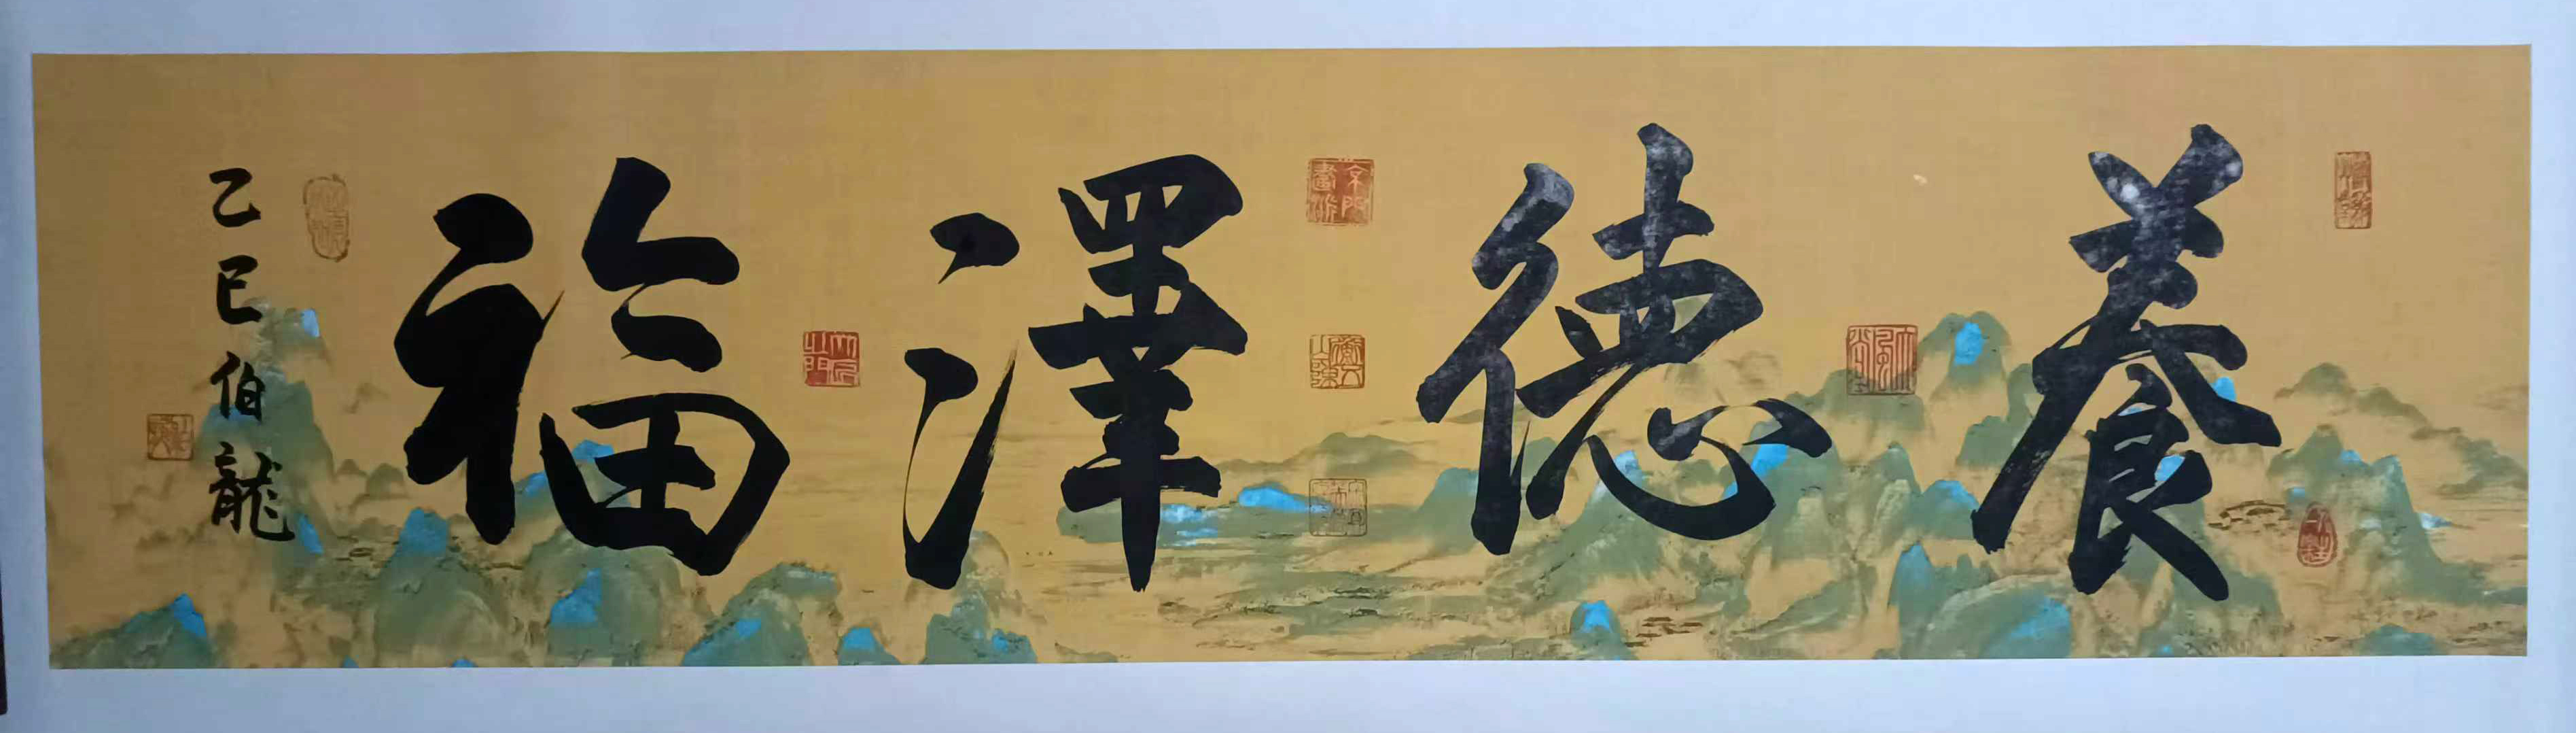 養德澤福
乙巳伯龍